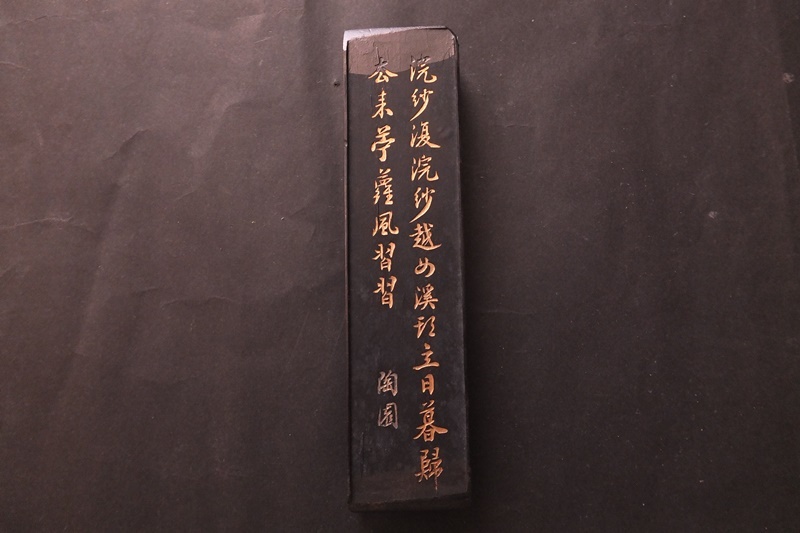 浣紗復浣紗越女溪頭立日暮歸
去来苧蘿風習習
陶園